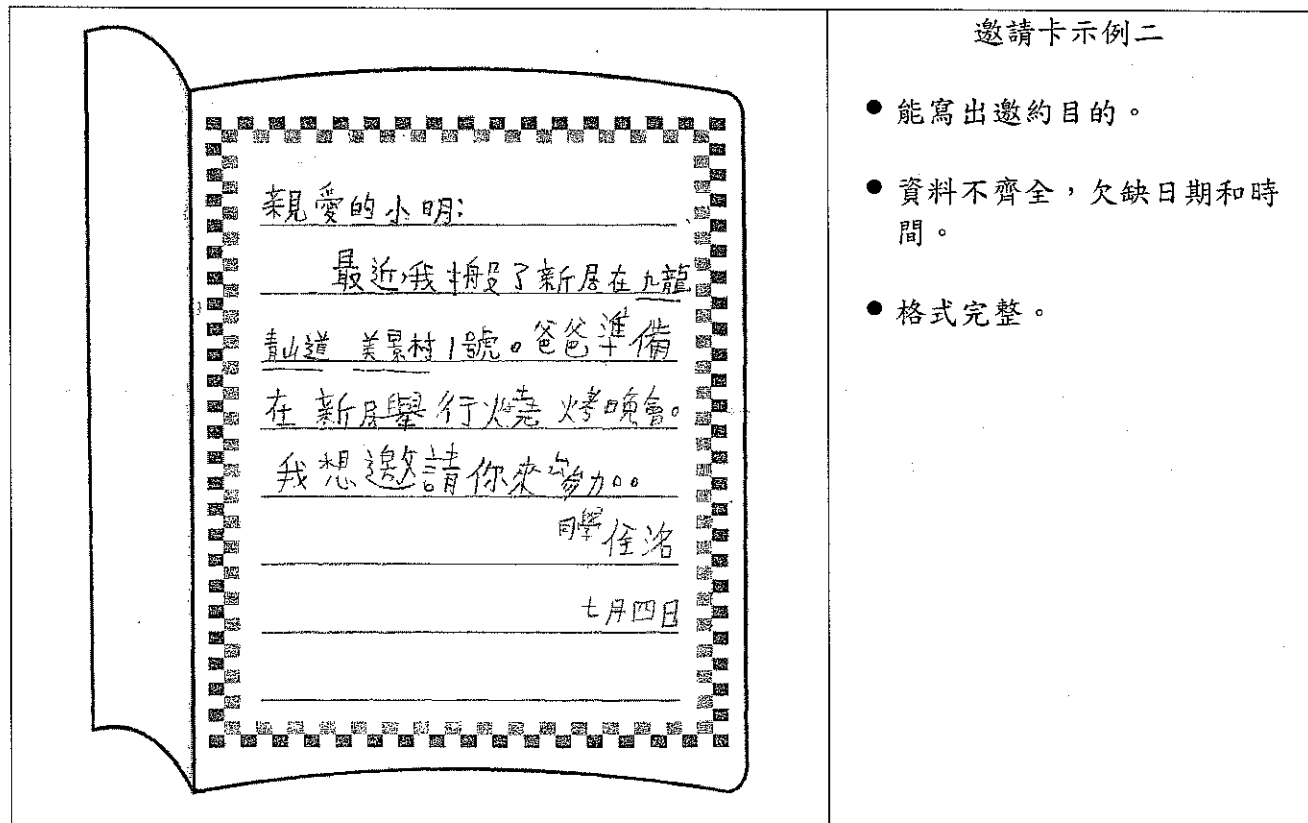 親愛的小明：
最近，我搬了新居在九龍
青山道 美景村1號。爸爸準備
在新居舉行燒烤晚會。
我想邀請你來參加。
同學任洛
七月四日
邀請卡示例二
● 能寫出邀約目的。
● 資料不齊全，欠缺日期和時
間。
● 格式完整。